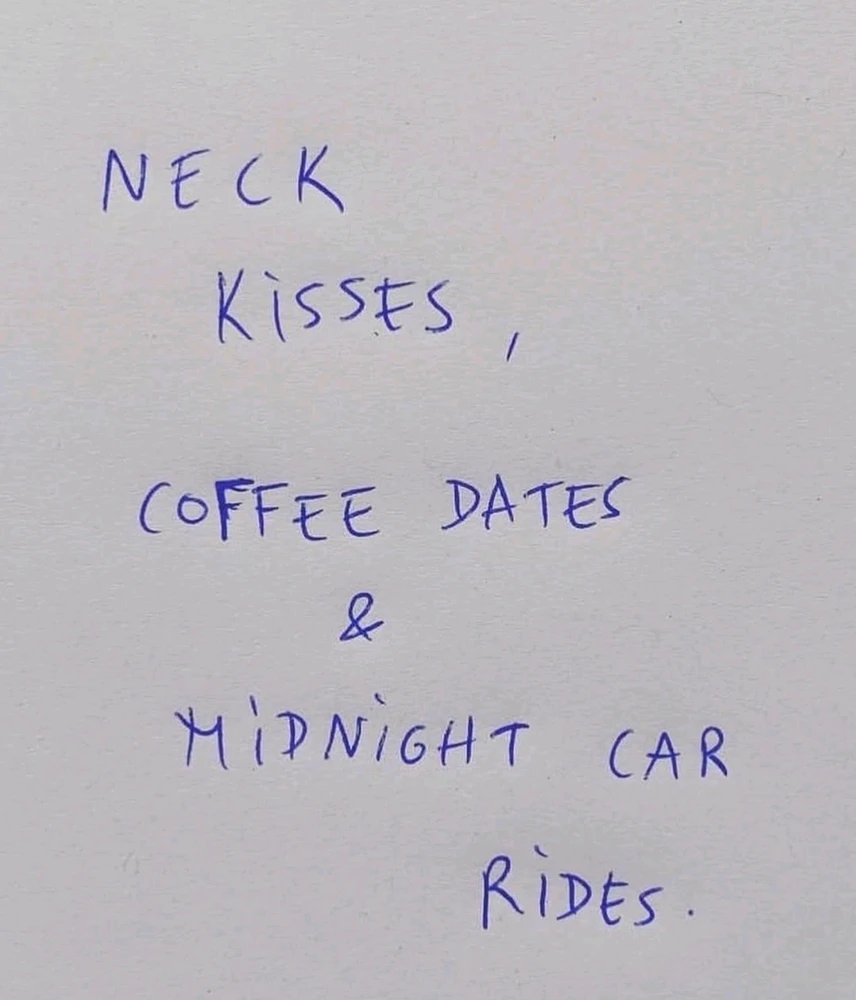 NECK
KiSSES,
COFFEE DATES
&
MiDNiGHT CAR
RiDES.